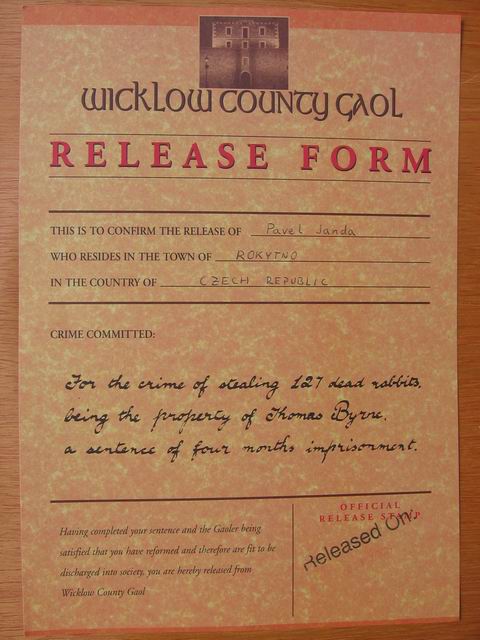 WICKLOW COUNTY GAOL
RELEASE FORM
THIS IS TO CONFIRM THE RELEASE OF Pavel Janda
WHO RESIDES IN THE TOWN OF ROKYTNO
IN THE COUNTRY OF CZECH REPUBLIC
CRIME COMMITTED:
For the crime of stealing 127 dead rabbits,
being the property of Thomas Byrne.
a sentence of four months imprisonment.
Having completed your sentence and the Gaoler being
satisfied that you have reformed and therefore are fit to be
discharged into society, you are hereby released from
Wicklow County Gaol
OFFICIAL
RELEASE STAMP
Released On: